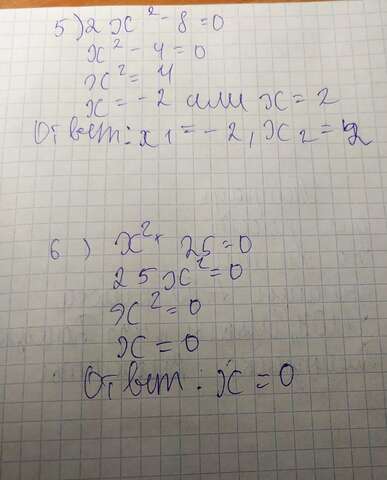 5) 2x² - 8 = 0
x² - 4 = 0
x² = 4
x = -2 или x = 2
Ответ: x1 = -2, x2 = 2
6) x² · 25 = 0
25x² = 0
x² = 0
x = 0
Ответ: x = 0